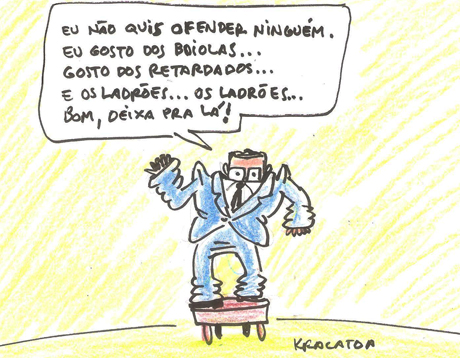 EU NÃO QUIS OFENDER NINGUÉM.
EU GOSTO DOS BOIOLAS...
GOSTO DOS RETARDADOS...
E OS LADRÕES... OS LADRÕES...
BOM, DEIXA PRA LÁ!
KRACATOA